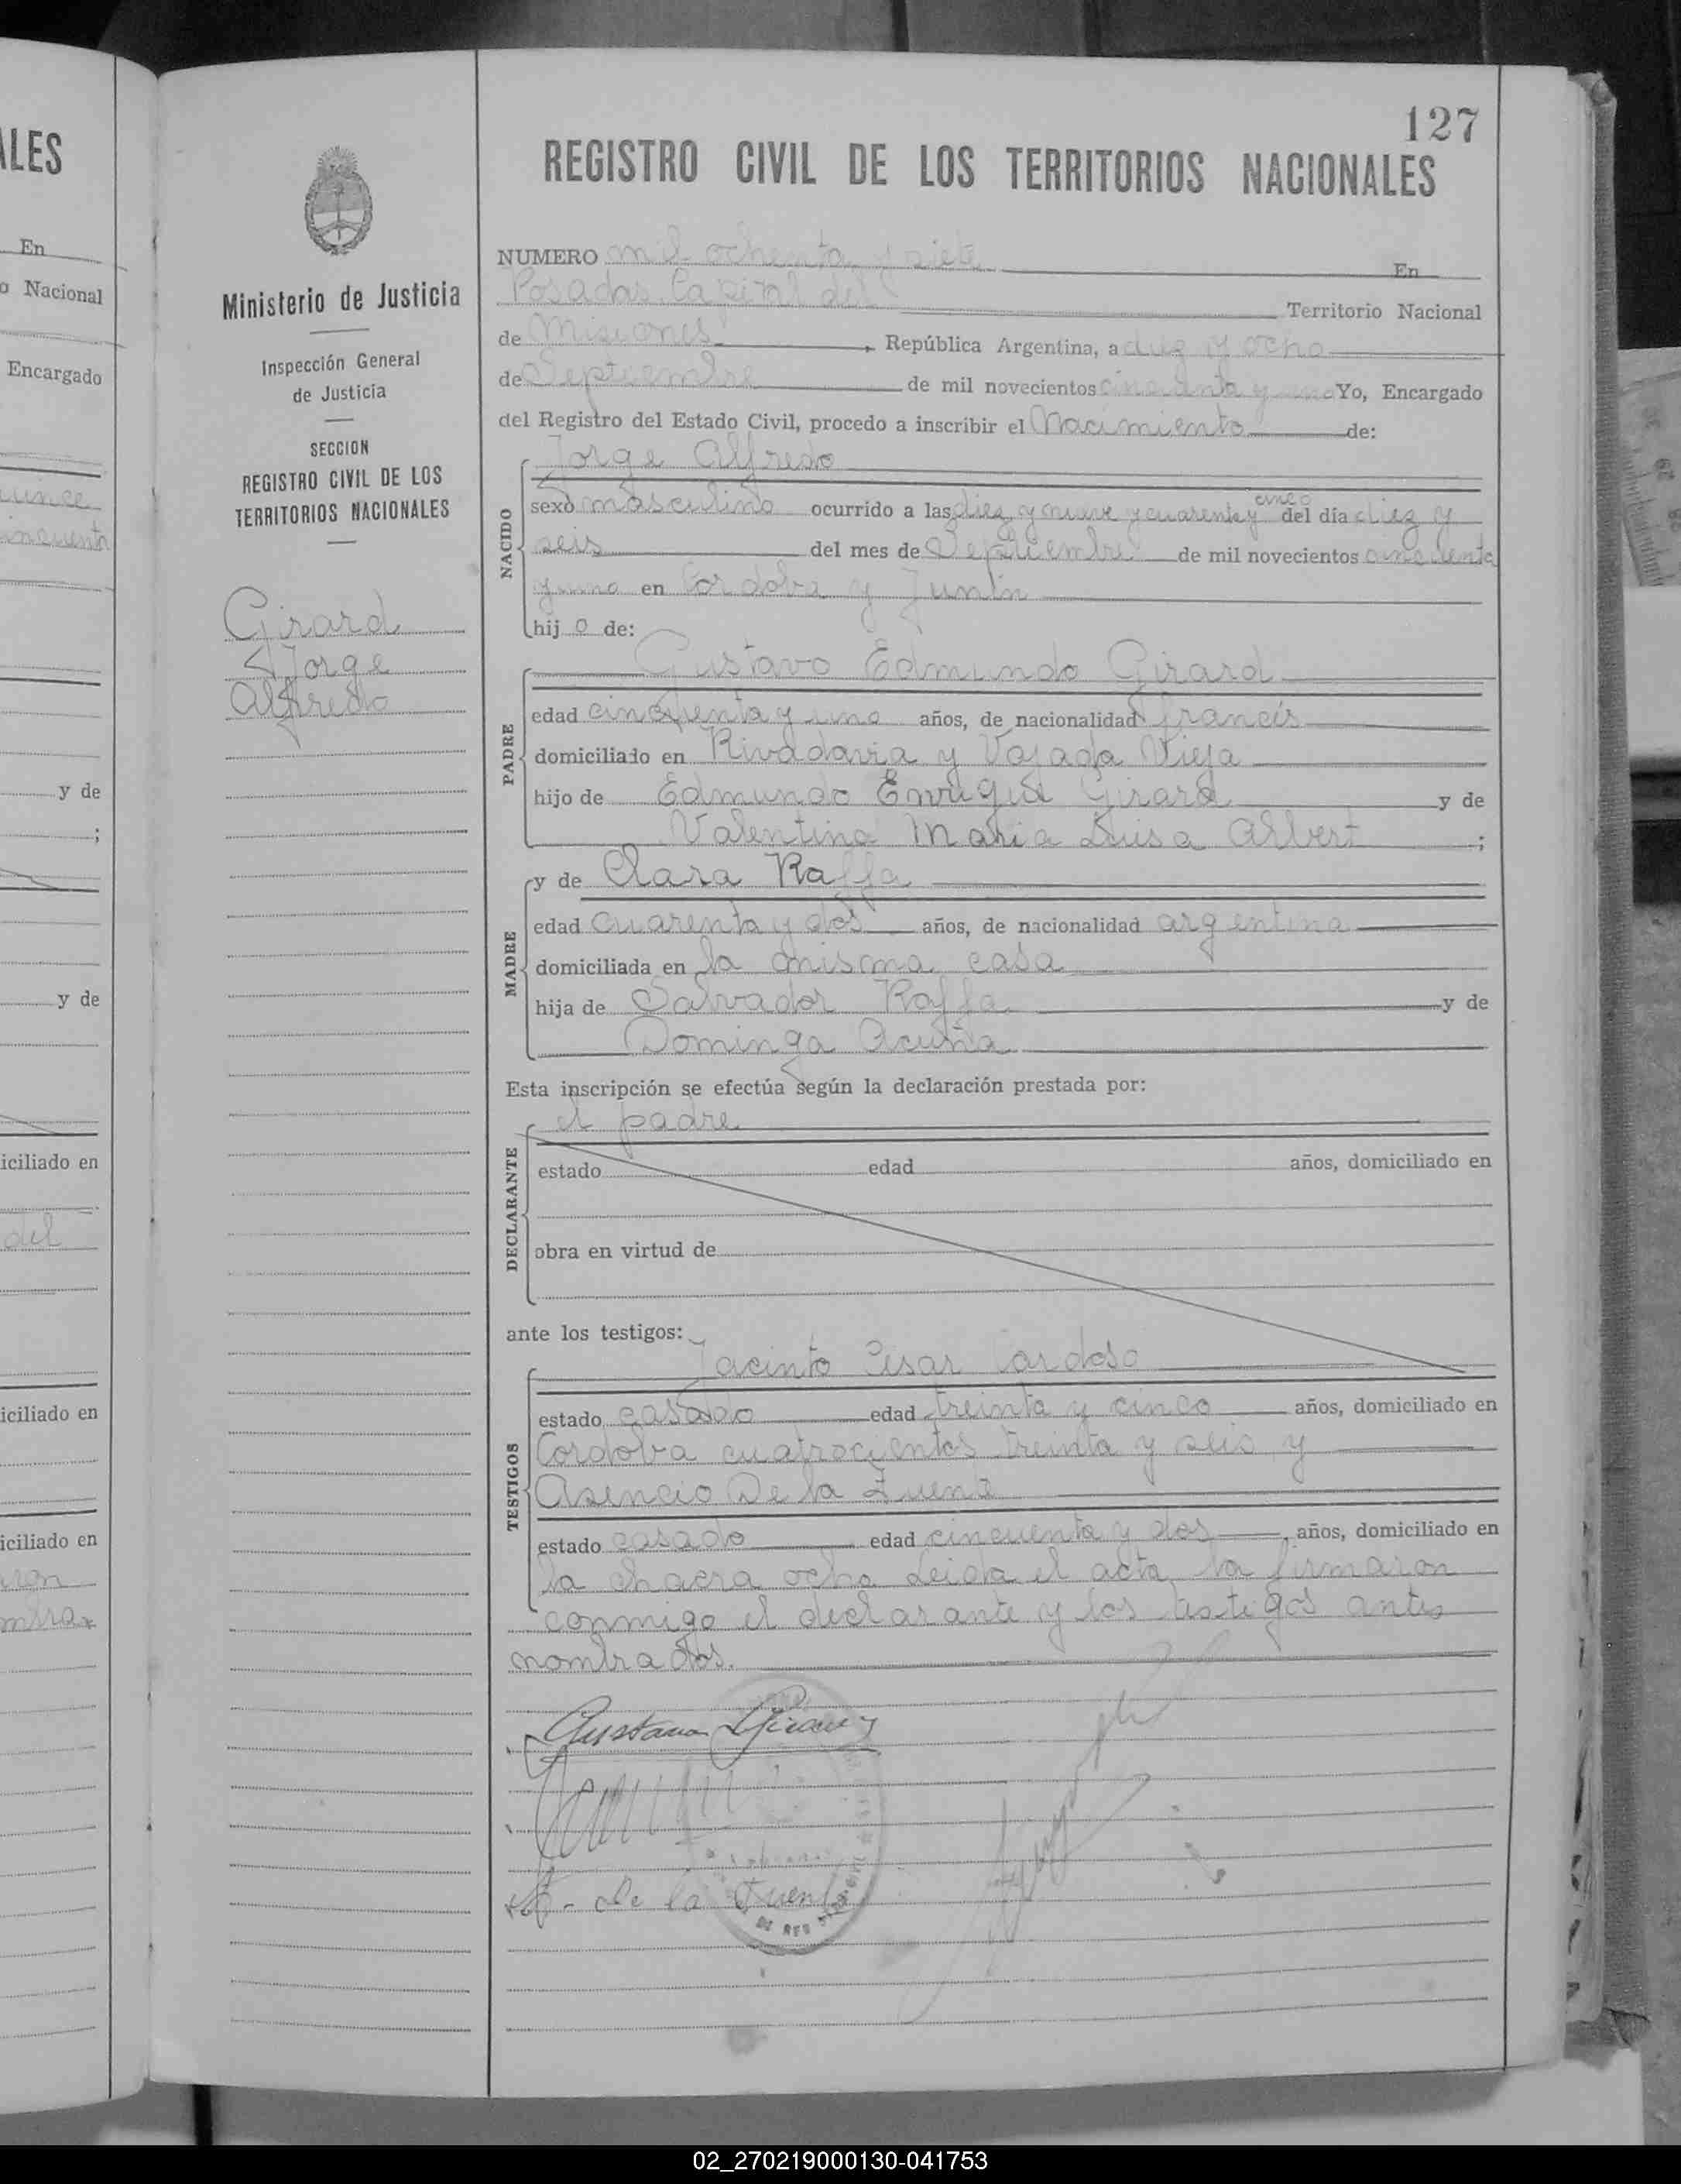 ALES
En
o Nacional
Encargado
uince
incuenta
y de
;
y de
iciliado en
del
iciliado en
iciliado en
ron
mbra=
Ministerio de Justicia
Inspección General
de Justicia
SECCION
REGISTRO CIVIL DE LOS
TERRITORIOS NACIONALES
Girard
Jorge
Alfredo
127
REGISTRO CIVIL DE LOS TERRITORIOS NACIONALES
NUMERO mil ochenta y siete En
Posadas Capital del Territorio Nacional
de Misiones, República Argentina, a diez y ocho
de Septiembre de mil novecientos cincuenta y uno Yo, Encargado
del Registro del Estado Civil, procedo a inscribir el Nacimiento de:
Jorge Alfredo
NACIDO
sexo masculino ocurrido a las diez y nueve y cuarenta y cinco del día diez y
seis del mes de Septiembre de mil novecientos cincuenta
y uno en Cordoba y Junin
hijo de:
Gustavo Edmundo Girard
PADRE
edad cincuenta y uno años, de nacionalidad francés
domiciliado en Rivadavia y Vajada Vieja
hijo de Edmundo Enrique Girard y de
Valentina Maria Luisa Albert ;
y de Clara Raffa
MADRE
edad cuarenta y dos años, de nacionalidad argentina
domiciliada en la misma casa
hija de Salvador Raffa y de
Dominga Acuña
Esta inscripción se efectúa según la declaración prestada por:
el padre
DECLARANTE
estado edad años, domiciliado en
obra en virtud de
ante los testigos:
Jacinto Cesar Cardoso
TESTIGOS
estado casado edad treinta y cinco años, domiciliado en
Cordoba cuatrocientos treinta y seis y
Asencio De la Fuente
estado casado edad cincuenta y dos, años, domiciliado en
la chacra ocho Leida el acta la firmaron
conmigo el declarante y los testigos antes
nombrados.
Gustavo Girard
A - de la Fuente
DE REG
02_270219000130-041753